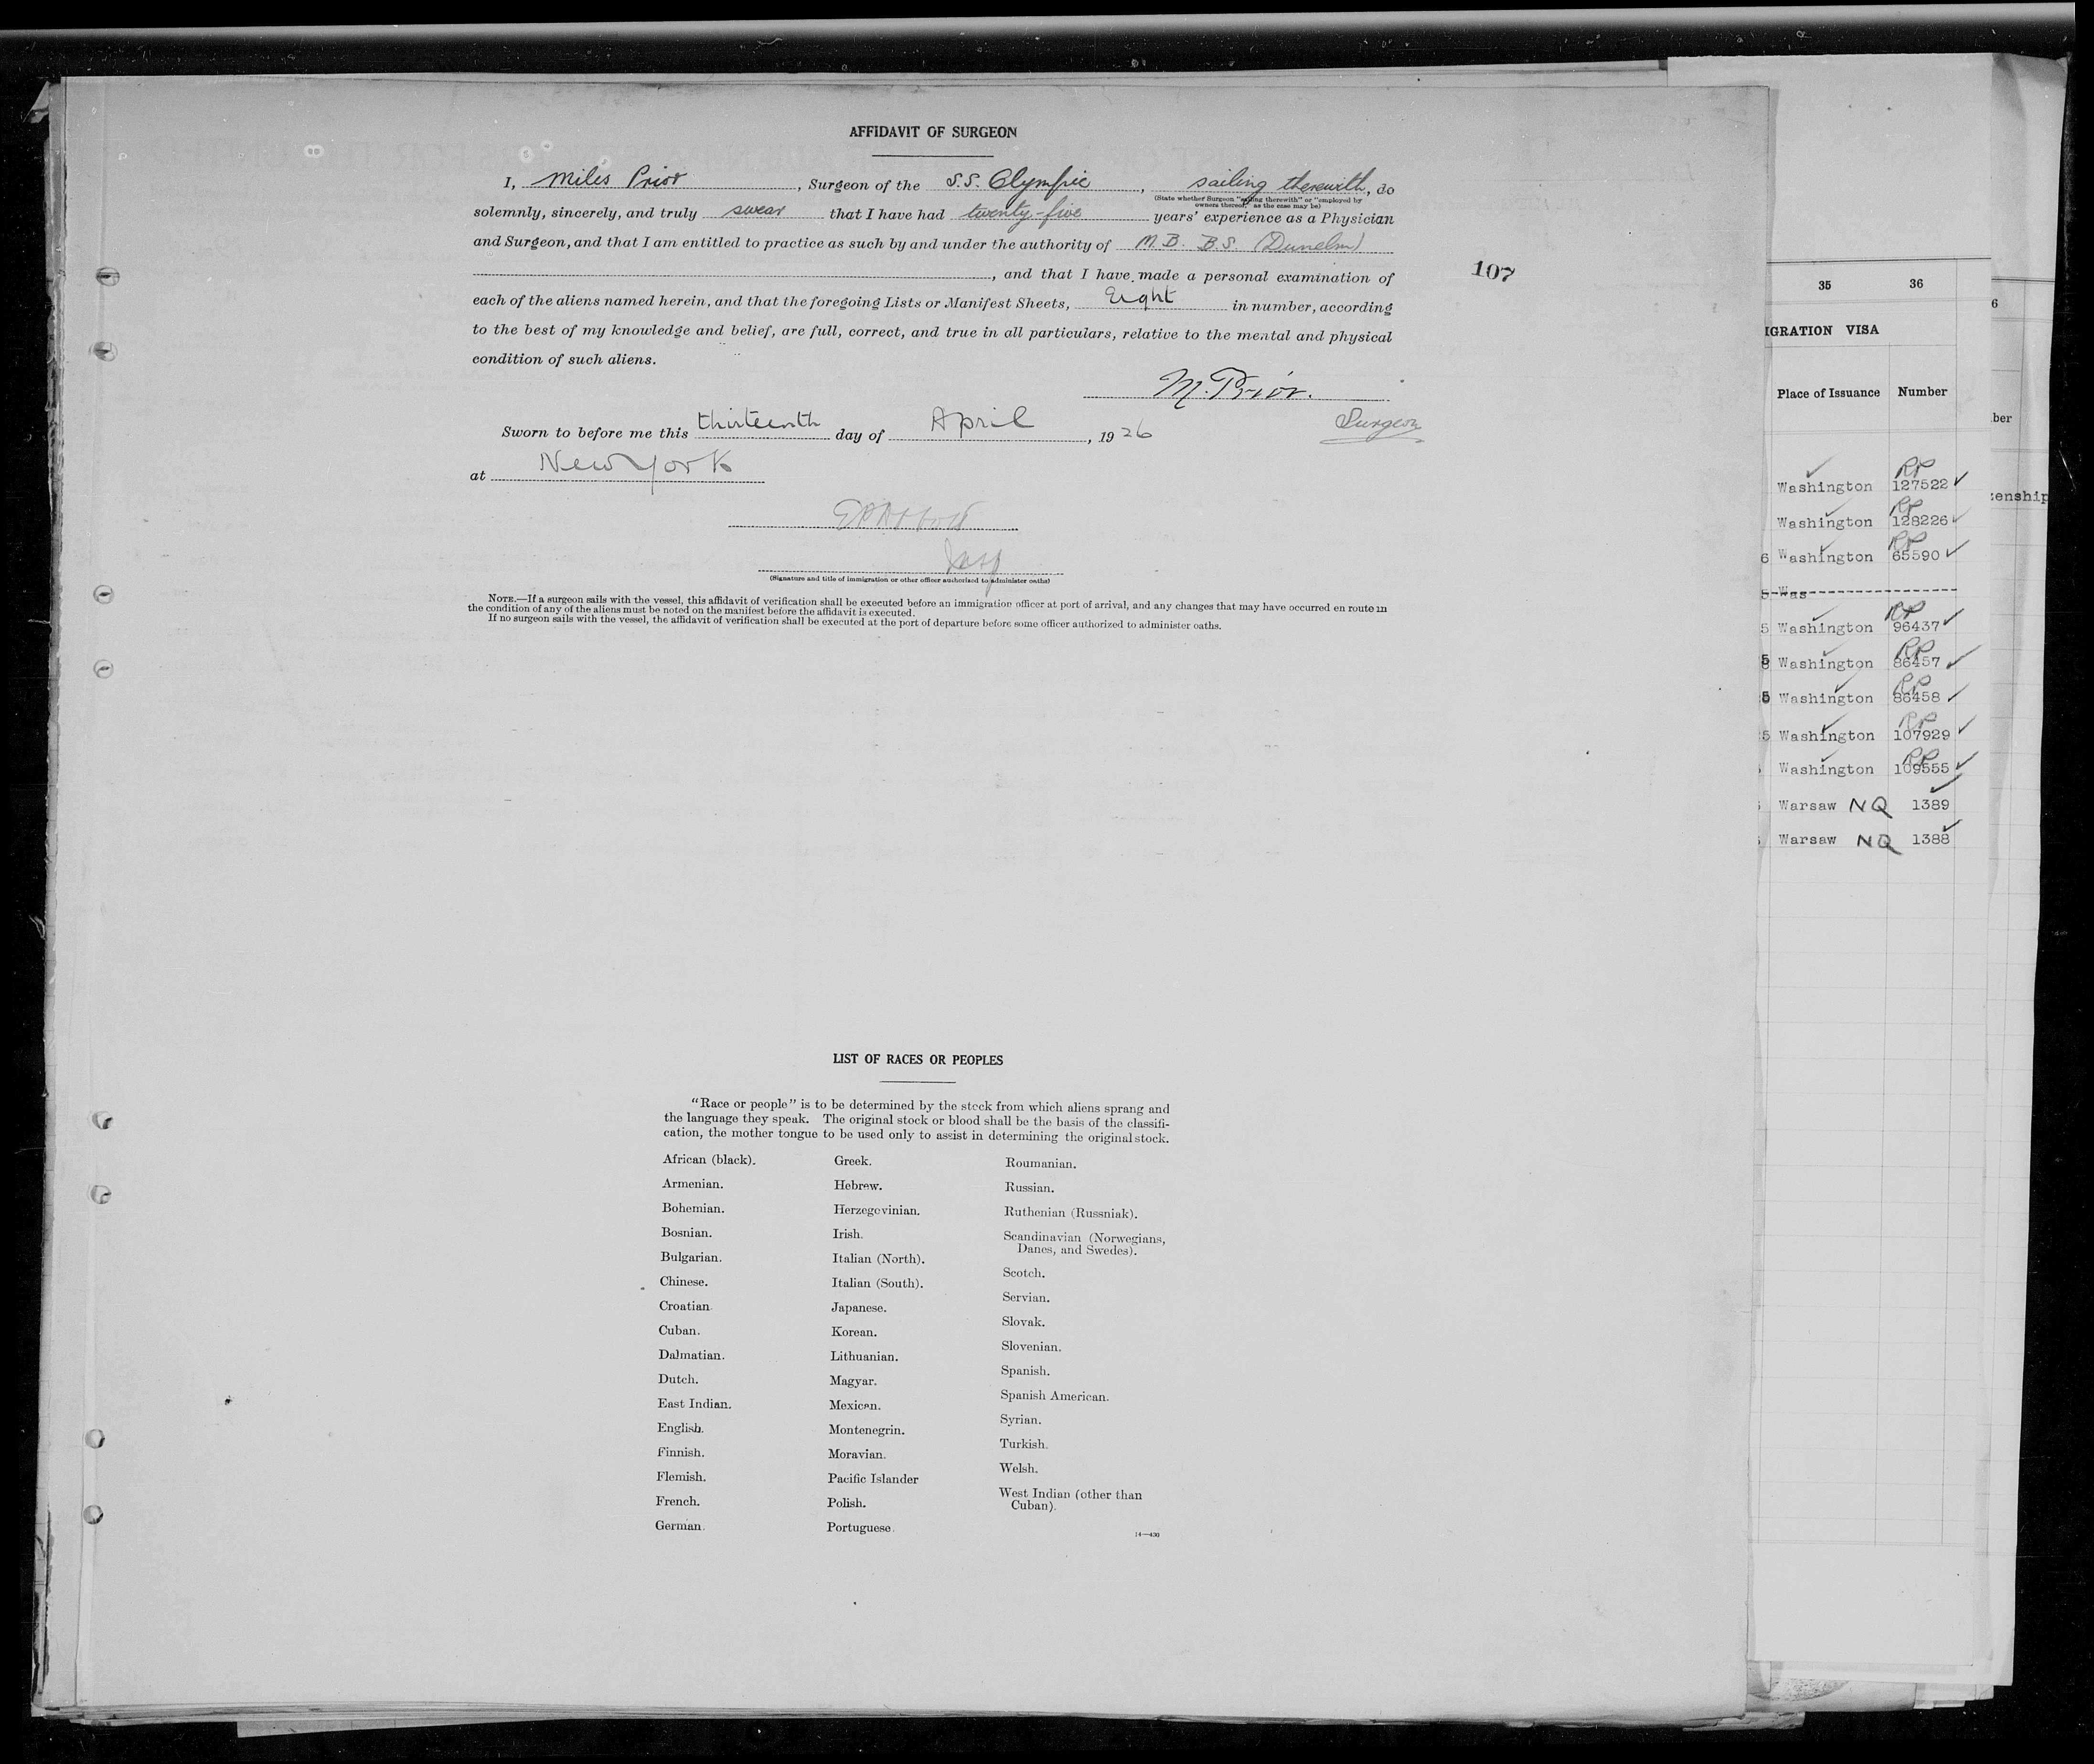 AFFIDAVIT OF SURGEON
I, Miles Prior, Surgeon of the S.S. Olympic, sailing therewith, do
(State whether Surgeon "sailing therewith" or "employed by
owners thereof," as the case may be)
solemnly, sincerely, and truly swear that I have had twenty-five years' experience as a Physician
and Surgeon, and that I am entitled to practice as such by and under the authority of M.B. B.S. (Dunelm)
, and that I have made a personal examination of
107
each of the aliens named herein, and that the foregoing Lists or Manifest Sheets, Eight in number, according
to the best of my knowledge and belief, are full, correct, and true in all particulars, relative to the mental and physical
condition of such aliens.
M. Prior.
Surgeon
Sworn to before me this thirteenth day of April, 1926
at New York
(Signature and title of immigration or other officer authorized to administer oaths)
NOTE.—If a surgeon sails with the vessel, this affidavit of verification shall be executed before an immigration officer at port of arrival, and any changes that may have occurred en route in
the condition of any of the aliens must be noted on the manifest before the affidavit is executed.
If no surgeon sails with the vessel, the affidavit of verification shall be executed at the port of departure before some officer authorized to administer oaths.
LIST OF RACES OR PEOPLES
"Race or people" is to be determined by the stock from which aliens sprang and
the language they speak. The original stock or blood shall be the basis of the classifi-
cation, the mother tongue to be used only to assist in determining the original stock.
African (black).
Armenian.
Bohemian.
Bosnian.
Bulgarian.
Chinese.
Croatian.
Cuban.
Dalmatian.
Dutch.
East Indian.
English.
Finnish.
Flemish.
French.
German.
Greek.
Hebrew.
Herzegovinian.
Irish.
Italian (North).
Italian (South).
Japanese.
Korean.
Lithuanian.
Magyar.
Mexican.
Montenegrin.
Moravian.
Pacific Islander
Polish.
Portuguese.
Roumanian.
Russian.
Ruthenian (Russniak).
Scandinavian (Norwegians,
Danes, and Swedes).
Scotch.
Servian.
Slovak.
Slovenian.
Spanish.
Spanish American.
Syrian.
Turkish.
Welsh.
West Indian (other than
Cuban).
14—430
35 36
IGRATION VISA
Place of Issuance Number
Washington RP 127522
Washington RP 128226
6 Washington RP 65590
5 Was
5 Washington RP 96437
Washington RP 86457
Washington RP 86458
5 Washington RP 107929
Washington RP 109555
Warsaw NQ 1389
Warsaw NQ 1388
6
ber
zenship